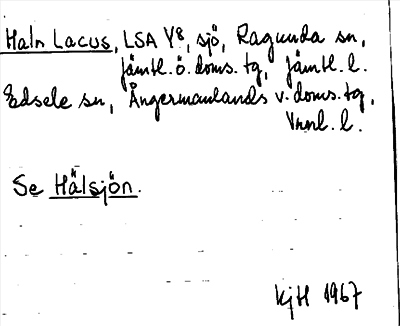 Haln Lacus, LSA Y8, sjö, Ragunda sn,
Jämtl. ö. doms. tg, Jämtl. l.
Edsele sn, Ångermanlands v. doms. tg,
Vrnl. l.
Se Hälsjön.
KjH 1967